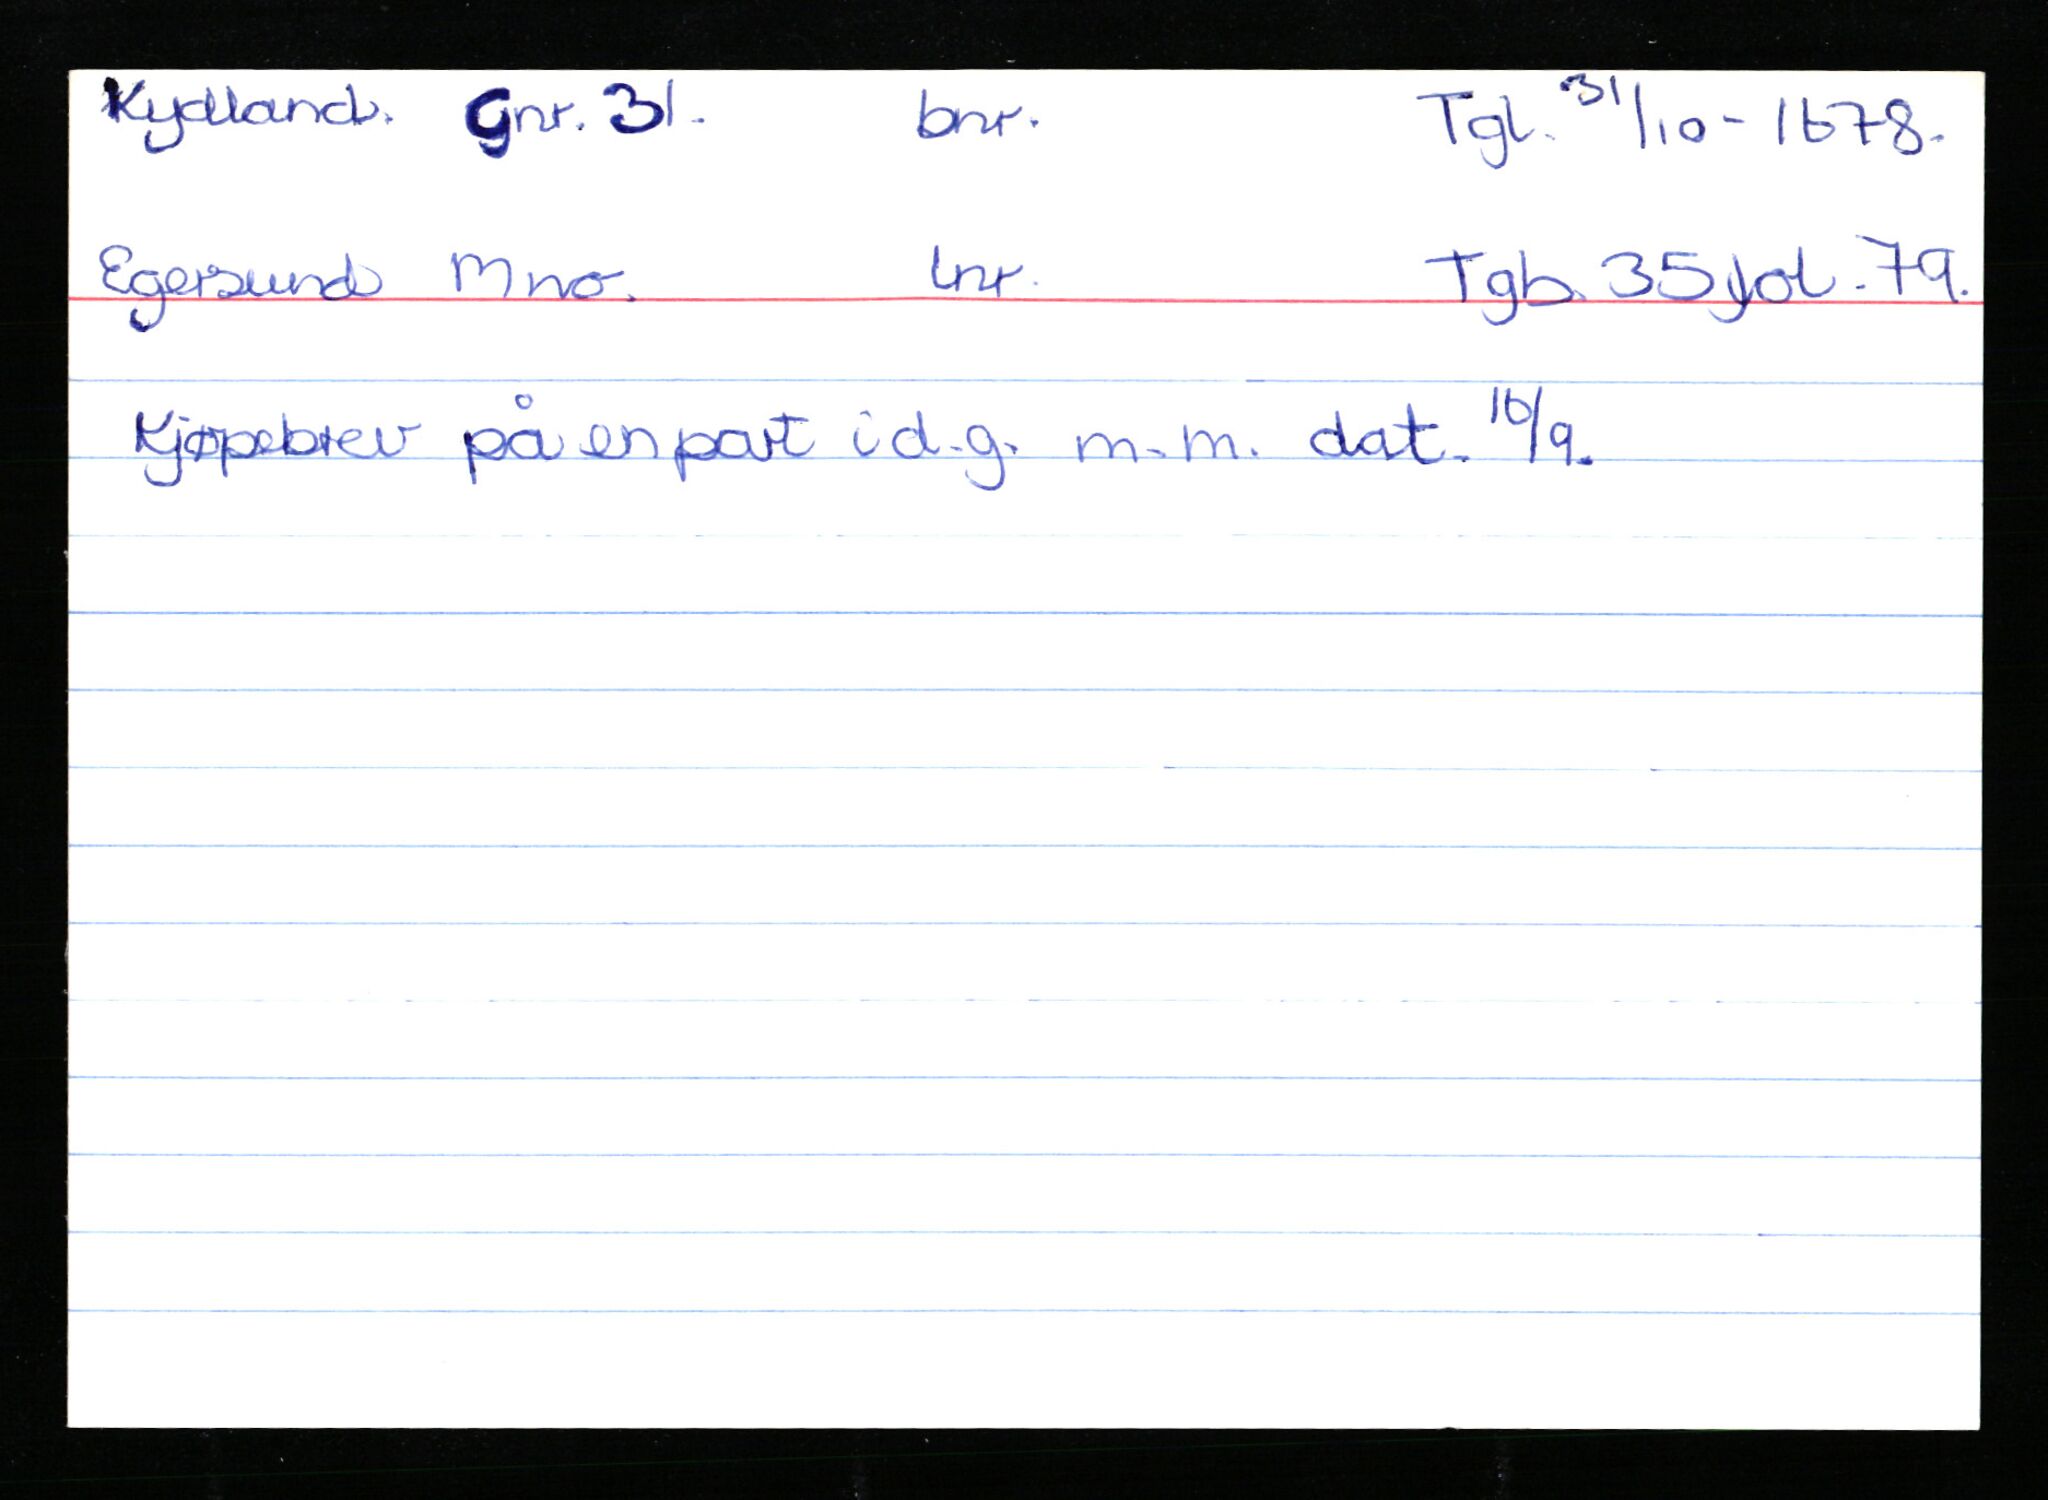 Kydland. Gnr. 31. bnr. Tgl. 31/10-1678.
Egersund Mno. lnr. Tgb. 35 fol. 79.
Kjøpebrev på en part i d.g. m.m. dat. 16/9.